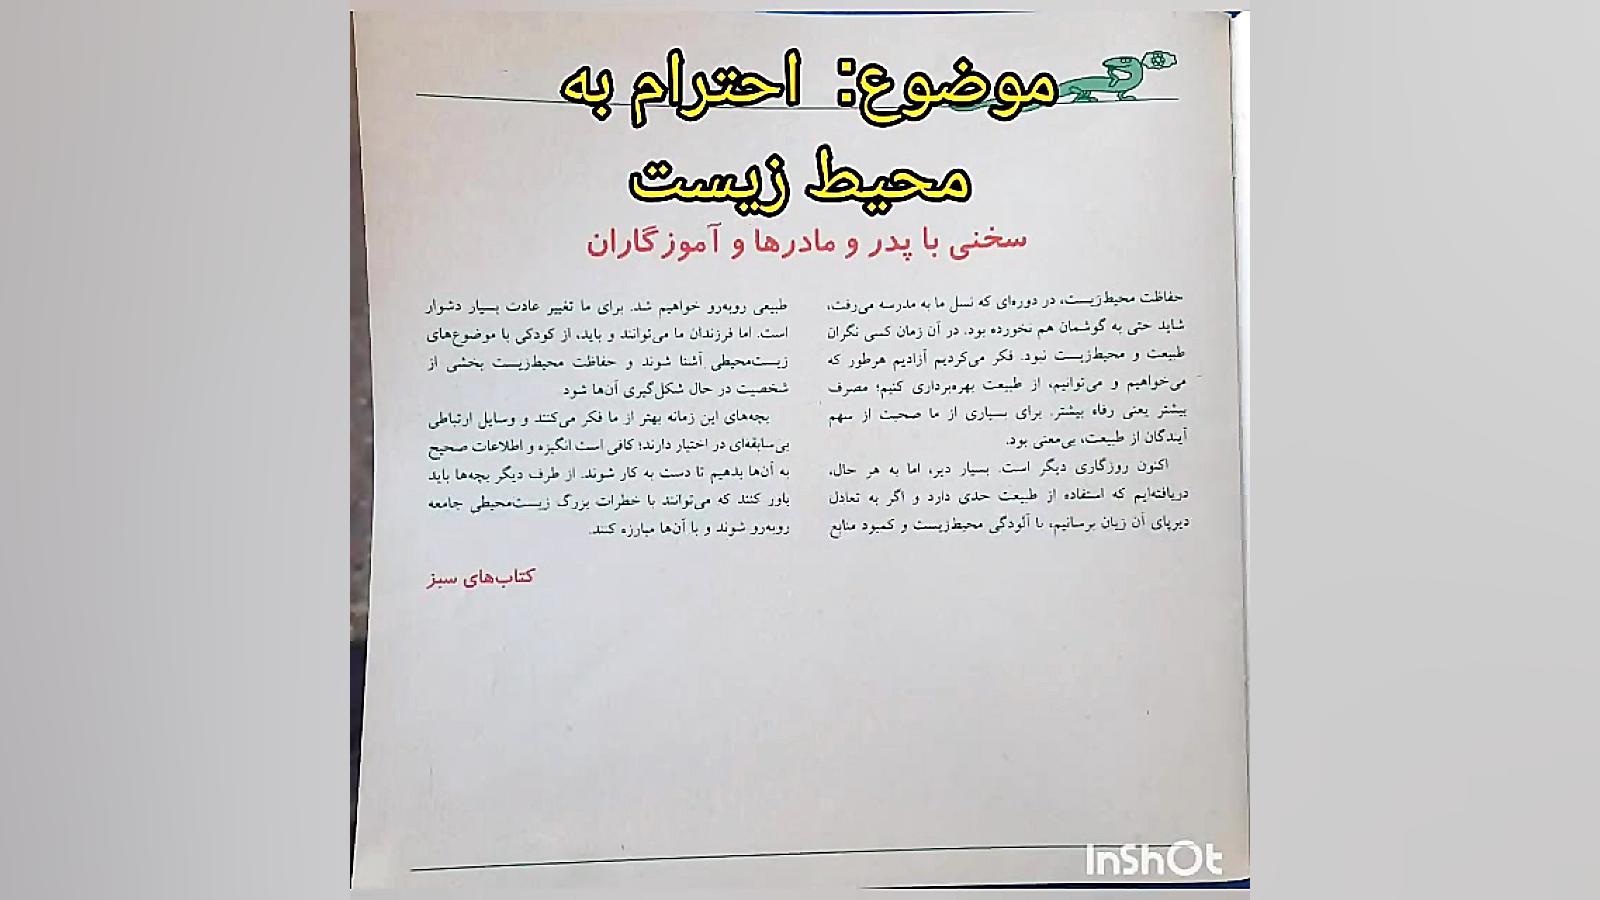 موضوع: احترام به
محیط زیست
سخنی با پدر و مادرها و آموزگاران
حفاظت محیط‌زیست، در دوره‌ای که نسل ما به مدرسه می‌رفت،
شاید حتی به گوشمان هم نخورده بود. در آن زمان کسی نگران
طبیعت و محیط‌زیست نبود. فکر می‌کردیم آزادیم هرطور که
می‌خواهیم و می‌توانیم، از طبیعت بهره‌برداری کنیم؛ مصرف
بیشتر یعنی رفاه بیشتر. برای بسیاری از ما صحبت از سهم
آیندگان از طبیعت، بی‌معنی بود.
اکنون روزگاری دیگر است. بسیار دیر، اما به هر حال،
دریافته‌ایم که استفاده از طبیعت حدی دارد و اگر به تعادل
دیرپای آن زیان برسانیم، با آلودگی محیط‌زیست و کمبود منابع
طبیعی روبه‌رو خواهیم شد. برای ما تغییر عادت بسیار دشوار
است. اما فرزندان ما می‌توانند و باید، از کودکی با موضوع‌های
زیست‌محیطی آشنا شوند و حفاظت محیط‌زیست بخشی از
شخصیت در حال شکل‌گیری آن‌ها شود
بچه‌های این زمانه بهتر از ما فکر می‌کنند و وسایل ارتباطی
بی‌سابقه‌ای در اختیار دارند؛ کافی است انگیزه و اطلاعات صحیح
به آن‌ها بدهیم تا دست به کار شوند. از طرف دیگر بچه‌ها باید
باور کنند که می‌توانند با خطرات بزرگ زیست‌محیطی جامعه
روبه‌رو شوند و با آن‌ها مبارزه کنند.
کتاب‌های سبز
InShOt